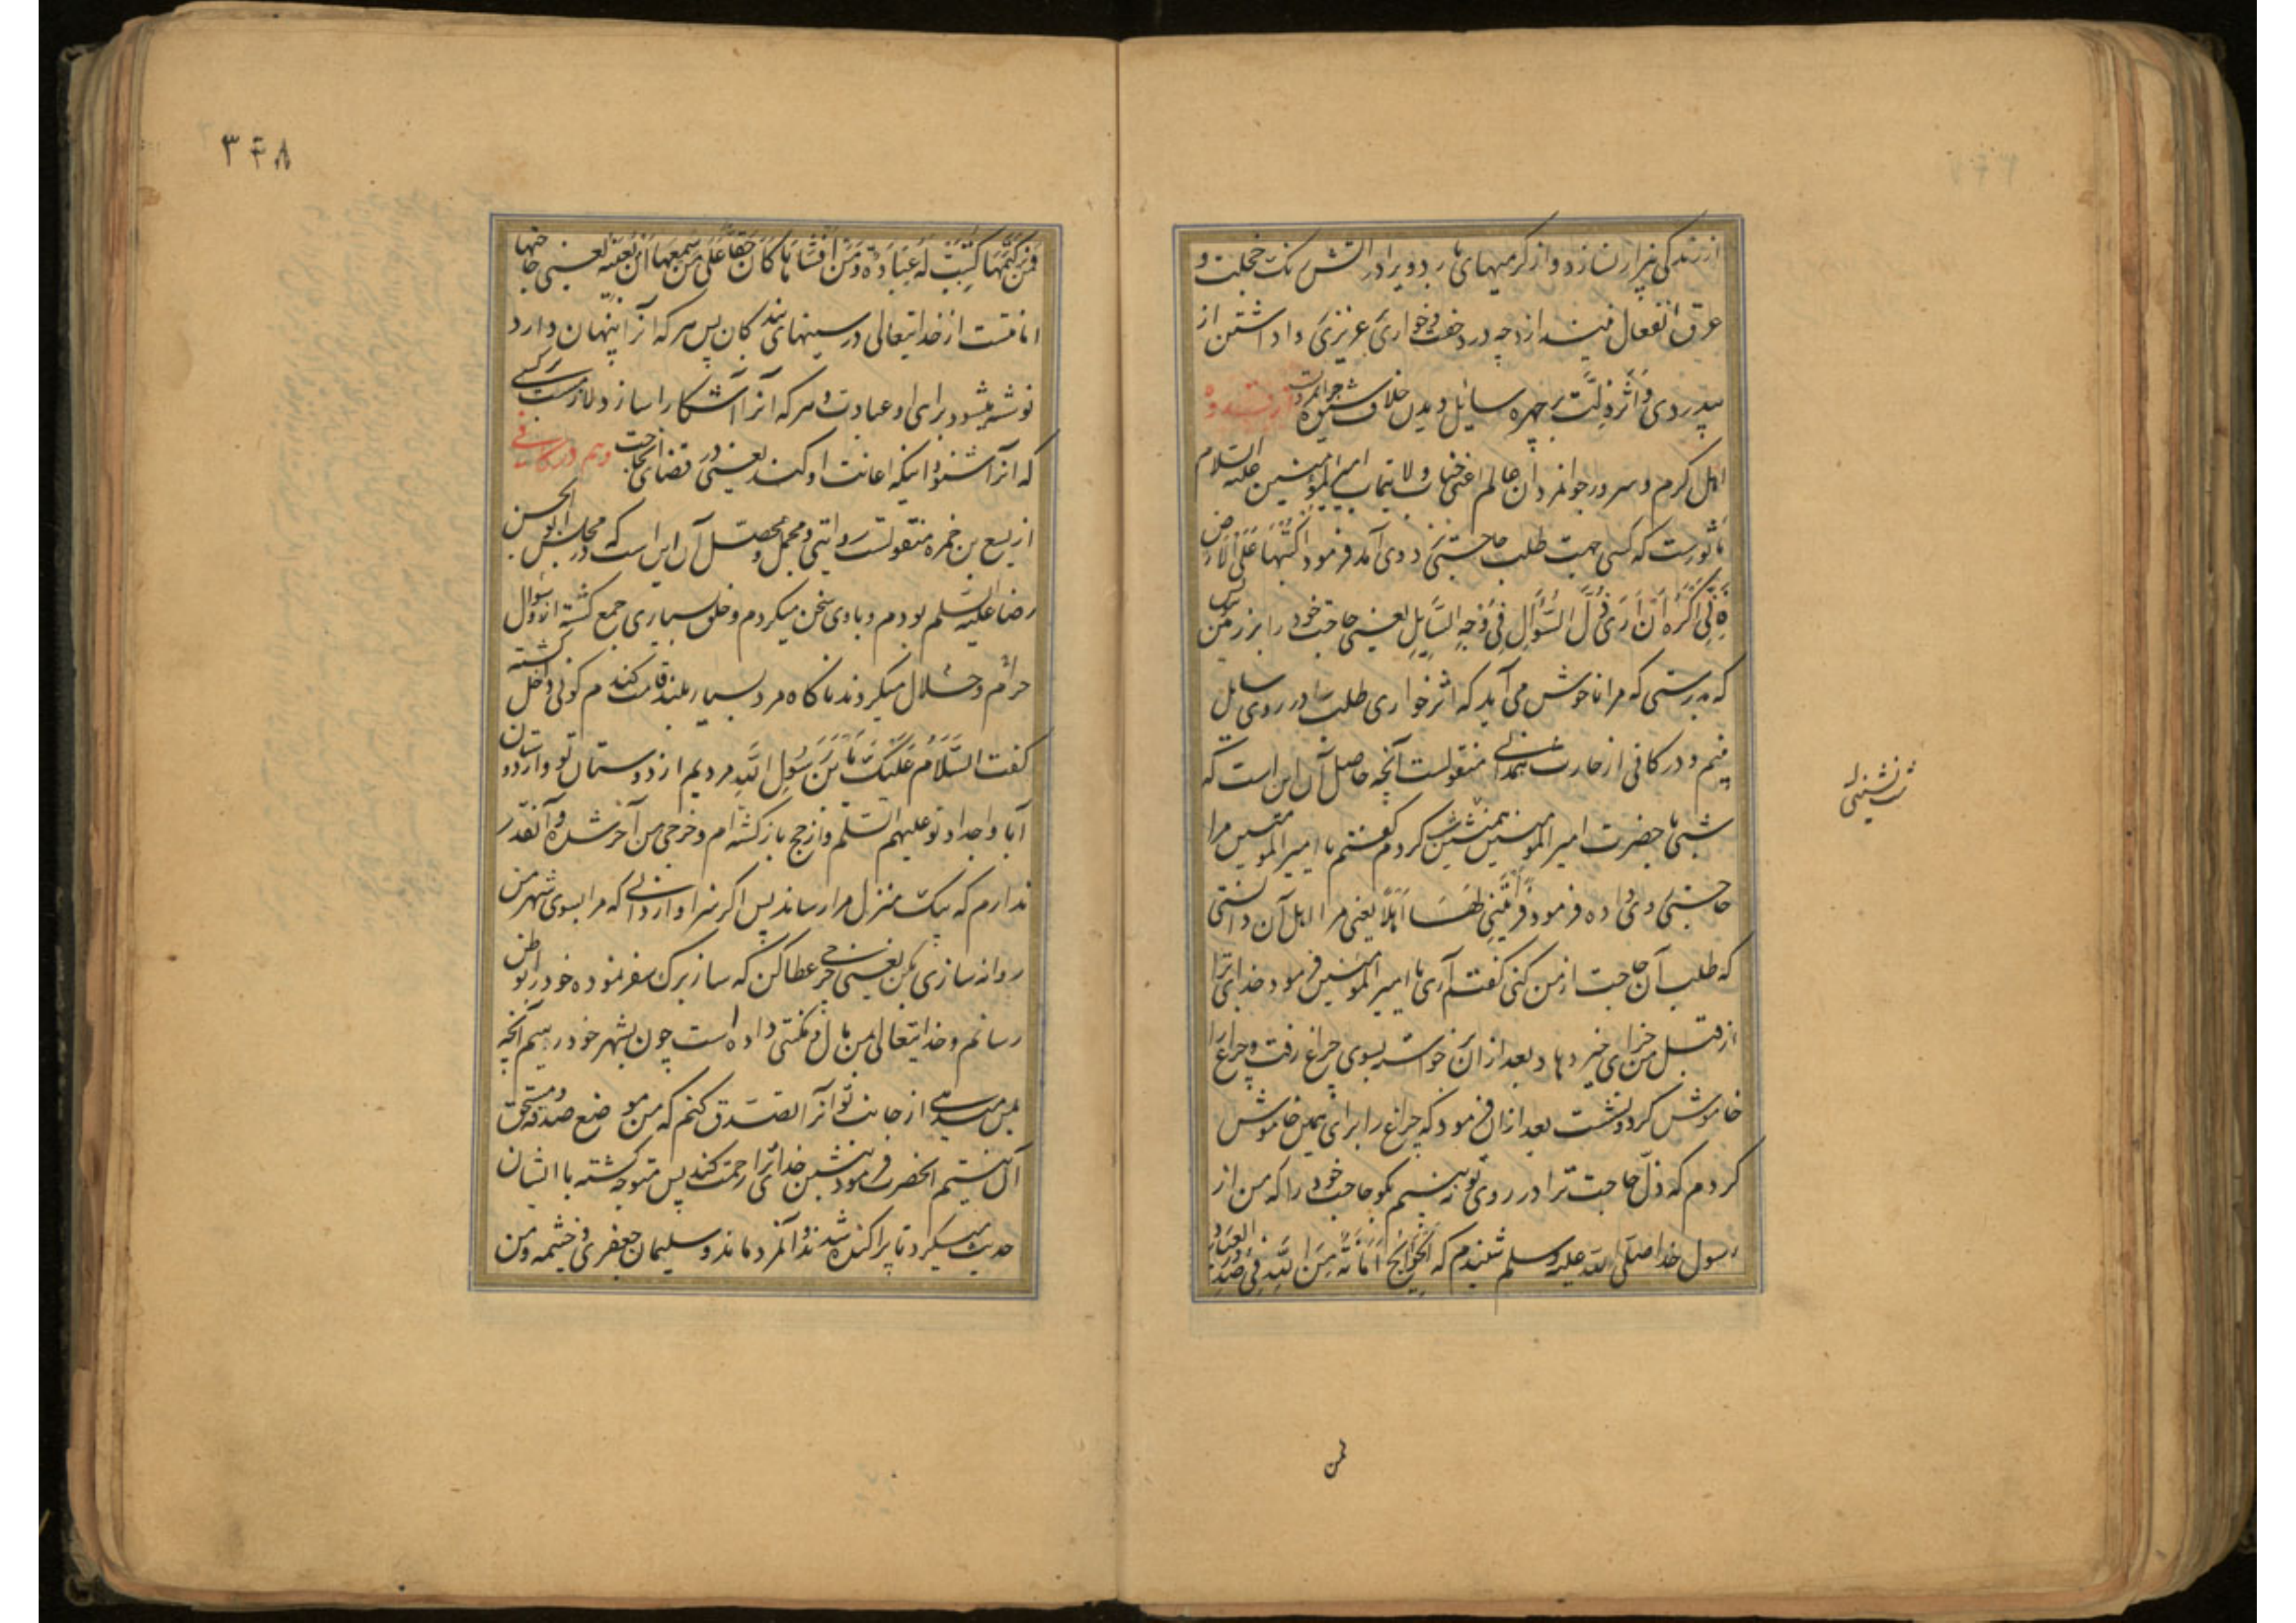 از زندگی بیزار نسازد و از گرمیهای بارد ویرا در آتش ننک خجلت و
عرق انفعال نیندازد چه در دخفت و خواری عزیزی داداشتن از
بیدردی و اثر ذلت بر چهره سایل دیدن خلاف شیوه جوانمردیست
اهل کرم و سرور جوانمردان عالم اعنی جناب ولایتماب امیر المؤمنین علیه السلام
ماثورست که کسی جهت طلب حاجتی نزد وی آمد فرمود اُکْتُبْهَا عَلَی الْاَرْضِ
فَاِنِّی اَکْرَهُ اَنْ اَرَی ذُلَّ السُّؤَالِ فِی وَجْهِ السَّایِلِ یعنی حاجت خود را بر زمین
که بدرستی که مرا ناخوش می آید که اثر خواری طلب در روی سایل
بینم و در کافی از حارث همدانی منقولست آنچه حاصل آن این است که
شبی با حضرت امیر المؤمنین همنشینی کردم گفتم یا امیر المؤمنین مرا
حاجتی روی داده فرمود فَرَأَیْتَنِی لَهَا اَهْلًا یعنی مرا اهل آن دانستی
که طلب آن حاجت از من کنی گفتم آری یا امیر المؤمنین فرمود خدا ترا
از قبل من جزای خیر دهاد بعد از آن برخواسته بسوی چراغ رفت و چراغ را
خاموش کرد و نشست بعد از آن فرمود که چراغ را برای همین خاموش
کردم که ذل حاجت ترا در روی تو نه بینم بگو حاجت خود را که من از
رسول خدا صلی الله علیه وسلم شنیدم که اَلْحَوَایِجُ اَمَانَةٌ مِنَ اللهِ فِی صُدُورِ الْعِبَادِ
شب نشینی
فمن
۳۴۸
فَمَنْ کَتَمَهَا کُتِبَتْ لَهُ عِبَادَةٌ وَ مَنْ اَفْشَاهَا کَانَ حَقًّا عَلَی مَنْ سَمِعَهَا اَنْ یُعِینَهُ یعنی حاجتها
امانتست از خدایتعالی در سینهای بندکان پس هر که آنرا پنهان دارد
نوشته میشود برای او عبادت و هر که آنرا آشکارا سازد لازمست بر کسی
که آنرا شنود اینکه اعانت او کند یعنی در قضای حاجت وهم در کافی
از یسع بن حمزه منقولست روایتی و مجمل و محصل آن این است که در مجلس ابو الحسن
رضا علیه السلم بودم و با وی سخن میکردم و خلق بسیاری جمع گشته از وی سوال
حرام و حلال میکردند ناگاه مرد بسیار بلند قامت گندم گونی داخل گشته
گفت السَّلَامُ عَلَیْکَ یَا بْنَ رَسُولِ اللهِ مردیم از دوستان تو و از دوستان
آبا و اجداد تو علیهم السلم و از حج بازگشته ام و خرجی من آخر شده و آنقدر
ندارم که بیک منزل مرا رساند پس اگر سزاوار دانی که مرا بسوی شهر من
روانه سازی بکن یعنی خرجی عطا کن که ساز برک سفر نموده خود را بوطن
رسانم و خدایتعالی بمن مال و مکنتی داده است چون بشهر خود رسیم آنچه
بمن میدهی از جانب تو آنرا تصدق کنم که من موضع صدقه و مستحق
آن نیستم آنحضرت فرمود بنشین خدا ترا رحمت کند پس متوجه گشته با ایشان
حدیث میکرد تا پراکنده شدند و آنمرد ماند و سلیمان جعفری و خیثمه و من